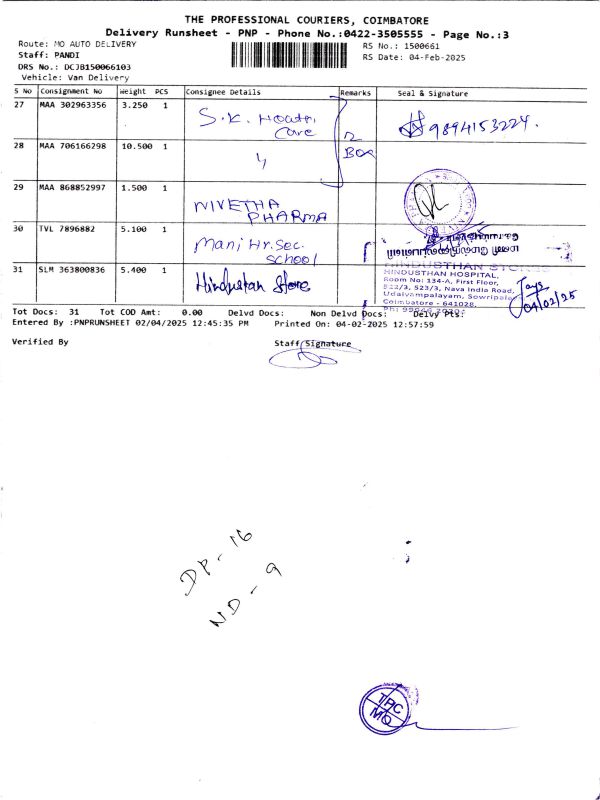 THE PROFESSIONAL COURIERS, COIMBATORE
Delivery Runsheet - PNP - Phone No.:0422-3505555 - Page No.:3
Route: MO AUTO DELIVERY
RS No.: 1500661
Staff: PANDI
RS Date: 04-Feb-2025
DRS No.: DCJB150066103
Vehicle: Van Delivery
S No Consignment No Weight PCS Consignee Details Remarks Seal & Signature
27 MAA 302963356 3.250 1 S.K. Health Care 9894153224.
28 MAA 706166298 10.500 1 〃 2 Box
29 MAA 868852997 1.500 1 NIVETHA PHARMA
30 TVL 7896882 5.100 1 Mani Hr.Sec. School
31 SLM 363800836 5.400 1 Hindustan Store
HINDUSTHAN STORES
HINDUSTHAN HOSPITAL,
Room No: 134-A, First Floor,
522/3, 523/3, Nava India Road,
Udaiyampalayam, Sowripalayam
Coimbatore - 641028.
Jays
04/02/25
Tot Docs: 31 Tot COD Amt: 0.00 Delvd Docs: Non Delvd Docs: Delvy Pts:
Entered By :PNPRUNSHEET 02/04/2025 12:45:35 PM Printed On :04-02-2025 12:57:59
Verified By Staff Signature
DP - 16
ND - 9
TPC
MQ